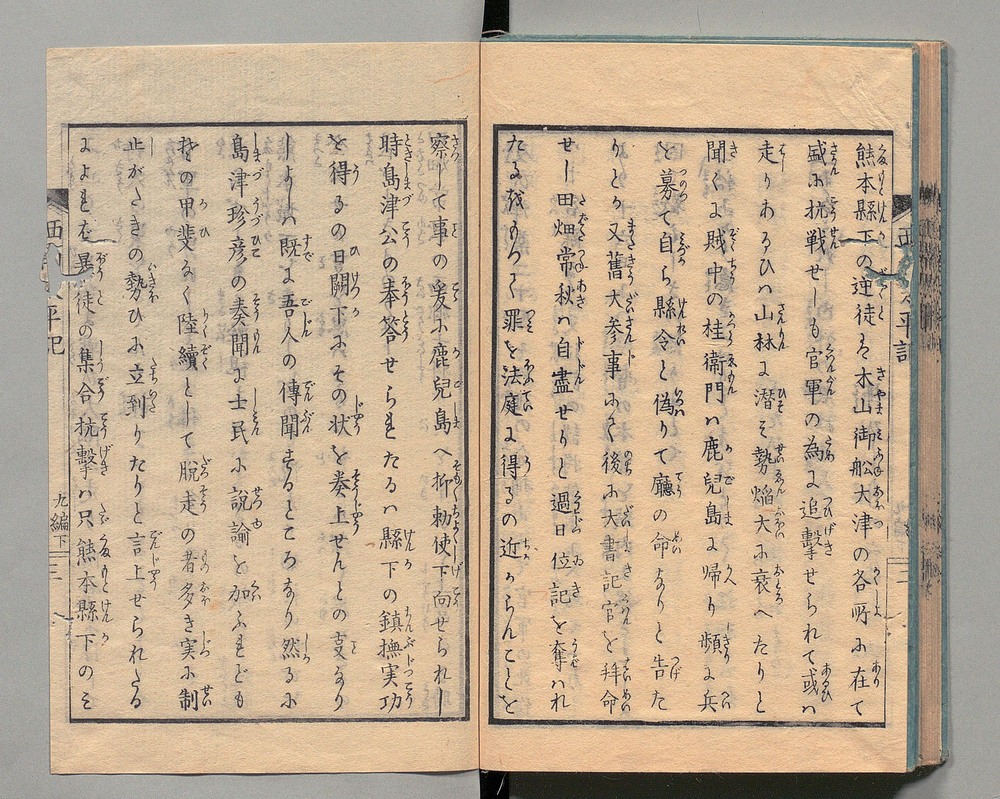 熊本縣下の逆徒ら木山御舩大津の各所に在て
盛に抗戦せしも官軍の為に追撃せられて或ハ
走りあるひハ山林に潜そ勢焔大に衰へたりと
聞くに賊中の桂衞門ハ鹿兒島に帰り頻に兵
を募て自ら縣令と偽りて廳の命なりと告た
りとか又舊大参事にて後に大書記官を拜命
せし田畑常秋ハ自盡せりと過日位記を奪ハれ
たる我ものく罪を法庭に得るの近からんことを
察して事の爰に鹿兒島へ抑勅使下向せられし
時島津公の奉答せられたるハ縣下の鎮撫実功
を得るの日闕下にその状を奏上せんとの支なり
しよりハ既に吾人の傳聞するところなり然るに
島津珍彦の奏聞に士民に説諭を加ふれども
その甲斐なく陸續として脱走の者多き実に制
止がたきの勢ひに立到りたりと言上せられたる
によれバ暴徒の集合抗撃ハ只熊本縣下のミ
九編下